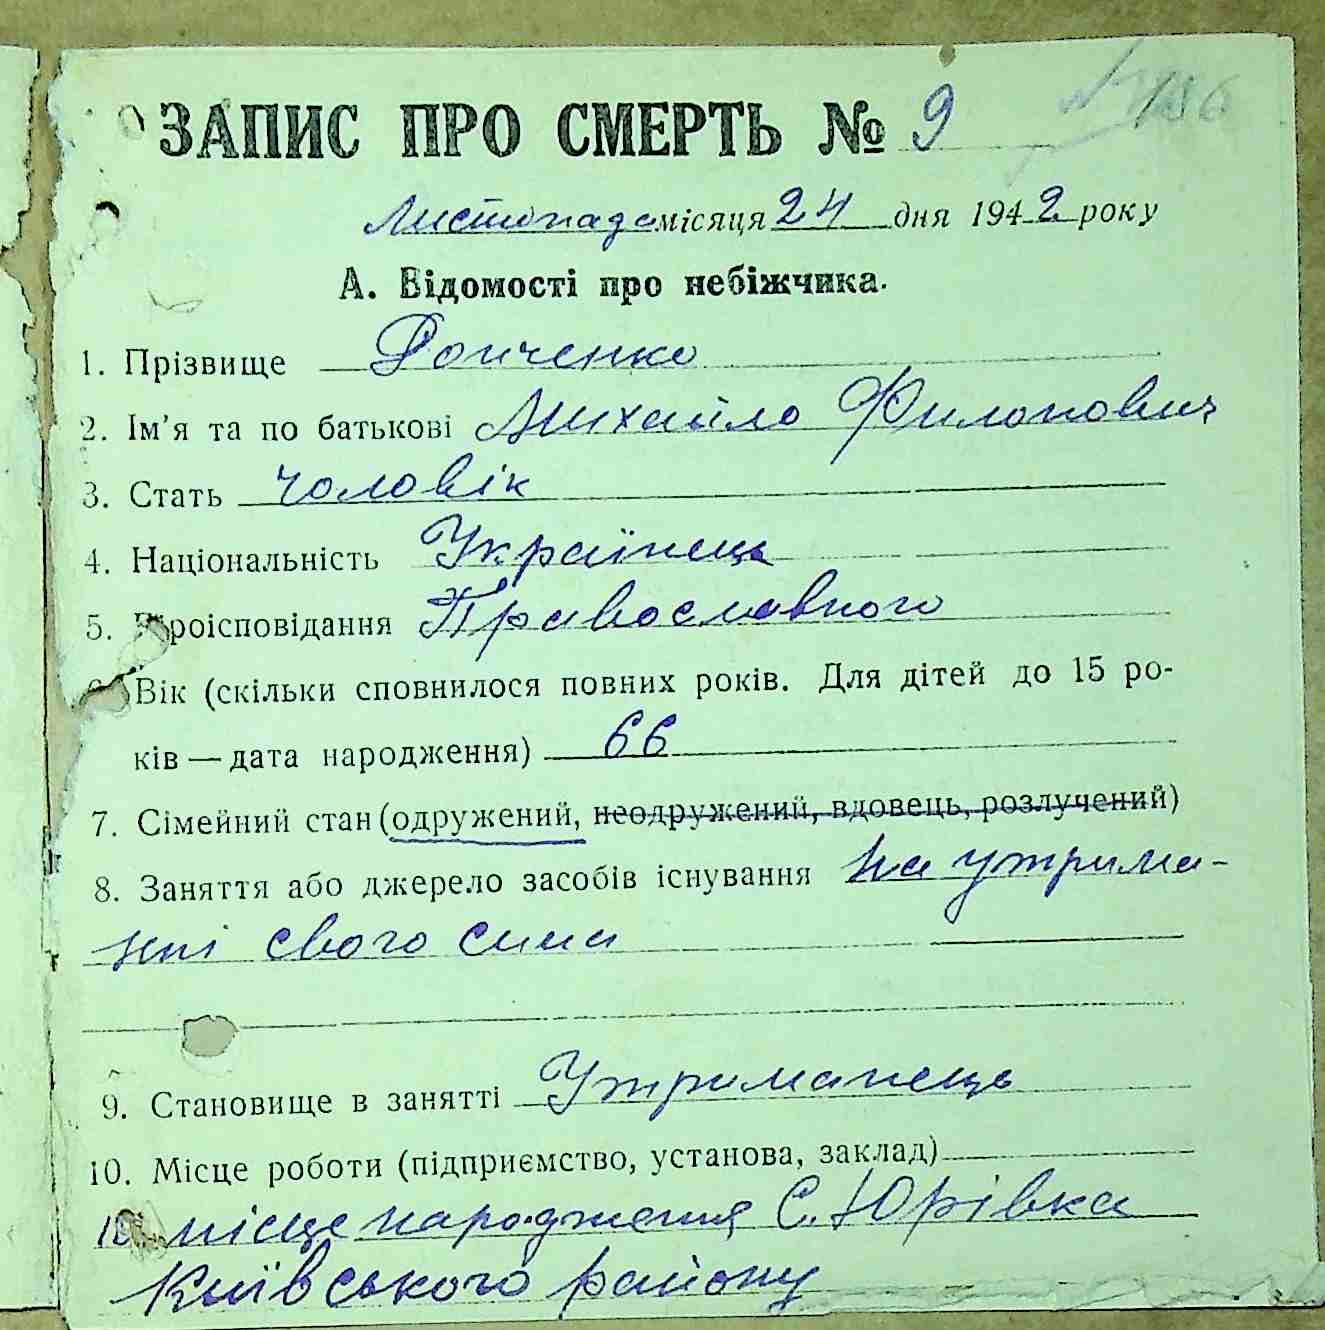 ЗАПИС ПРО СМЕРТЬ № 9
Листопада місяця 24 дня 1942 року
А. Відомості про небіжчика.
1. Прізвище Донченко
2. Ім'я та по батькові Михайло Филипович
3. Стать чоловік
4. Національність Українець
5. Віроісповідання Православного
6. Вік (скільки сповнилося повних років. Для дітей до 15 ро-
ків — дата народження) 66
7. Сімейний стан (одружений, неодружений, вдовець, розлучений)
8. Заняття або джерело засобів існування На утрима-
нні свого сина
9. Становище в занятті Утриманець
10. Місце роботи (підприємство, установа, заклад)
місце народження С. Юрівка
Київського району